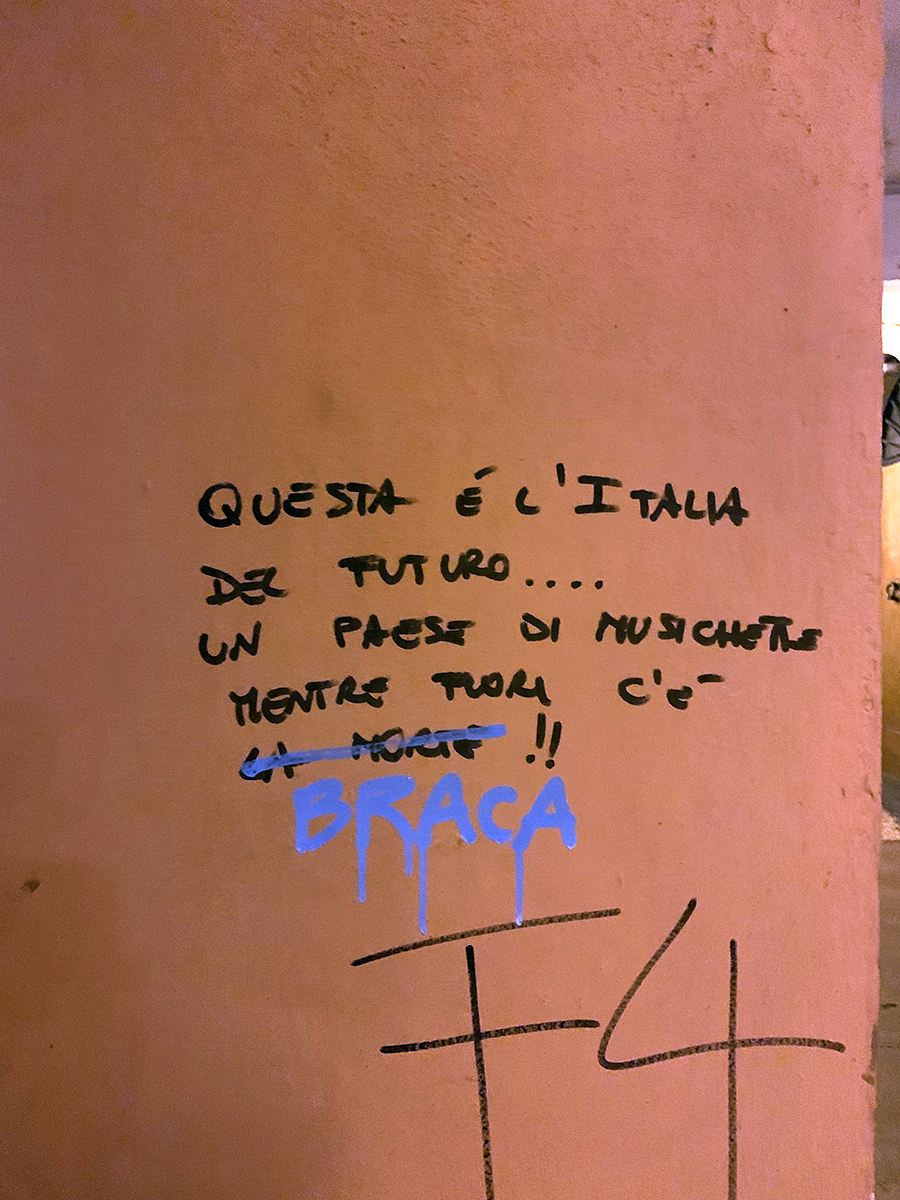 QUESTA É L'ITALIA
DEL FUTURO....
UN PAESE DI MUSICHETTE
MENTRE FUORI C'É
LA MORTE !!
BRACA
F4